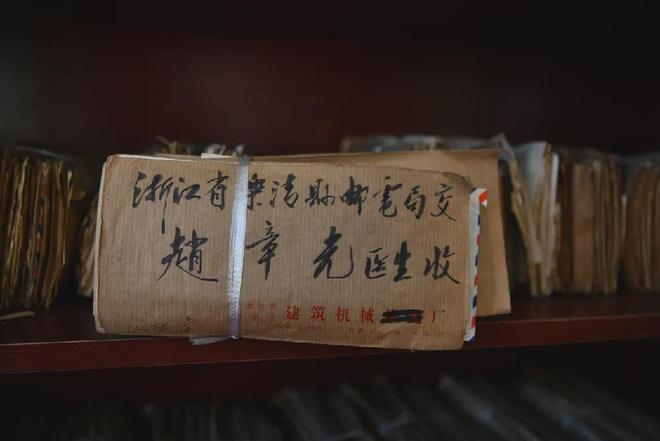 浙江省乐清縣邮電局交
趙章光医生收
建筑机械厂